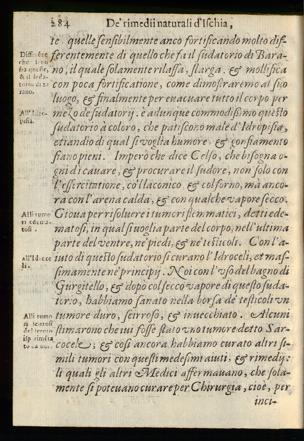 284 De' rimedii naturali d'Ischia,
te quelle sensibilmente anco fortificando molto dif-
ferentemente di quello che fa il sudatorio di Bara-
no; il quale solamente rilassa, slarga, & mollifica
con poca fortificatione, come dimostraremo al suo
luogo, & finalmente per euacuare tutto il corpo per
mezo de sudatorij. è adunque commodissimo questo
sudatorio à coloro, che patiscono male d'Idropisia,
etiandio di qual si voglia humore & confiamento
siano pieni. Imperò che dice Celso, che bisogna o-
gni dì cauare, & procurare il sudore, non solo con
l'essercitatione, cò'l laconico & col forno, mà anco-
ra con l'arena calda, & con qualche vapore secco.
Gioua per risoluere i tumori flemmatici, detti ede-
matosi, in qual si voglia parte del corpo, nell'vltima
parte del ventre, ne' piedi, & ne' testicoli. Con l'a-
iuto di questo sudatorio si curano l'Idroceli, et mas-
simamente ne' principij. Noi con l'vso del bagno di
Gurgitello, & dopò col secco vapore di questo suda-
torio, habbiamo sanato nella borsa de' testicoli vn
tumore duro, scirroso, & inuecchiato. Alcuni
stimarono che iui fosse stato vno tumore detto Sar-
cocele; & così ancora habbiamo curato altri si-
mili tumori con questi medesimi aiuti, & rimedij:
li quali gli altri Medici affermauano, che sola-
mente si poteuano curare per Chirurgia, cioè, per
inci-
All'Idro-
pisia.
Alli tumo
ri edema-
tosi.
All'Idroce
li.
Alli tumo